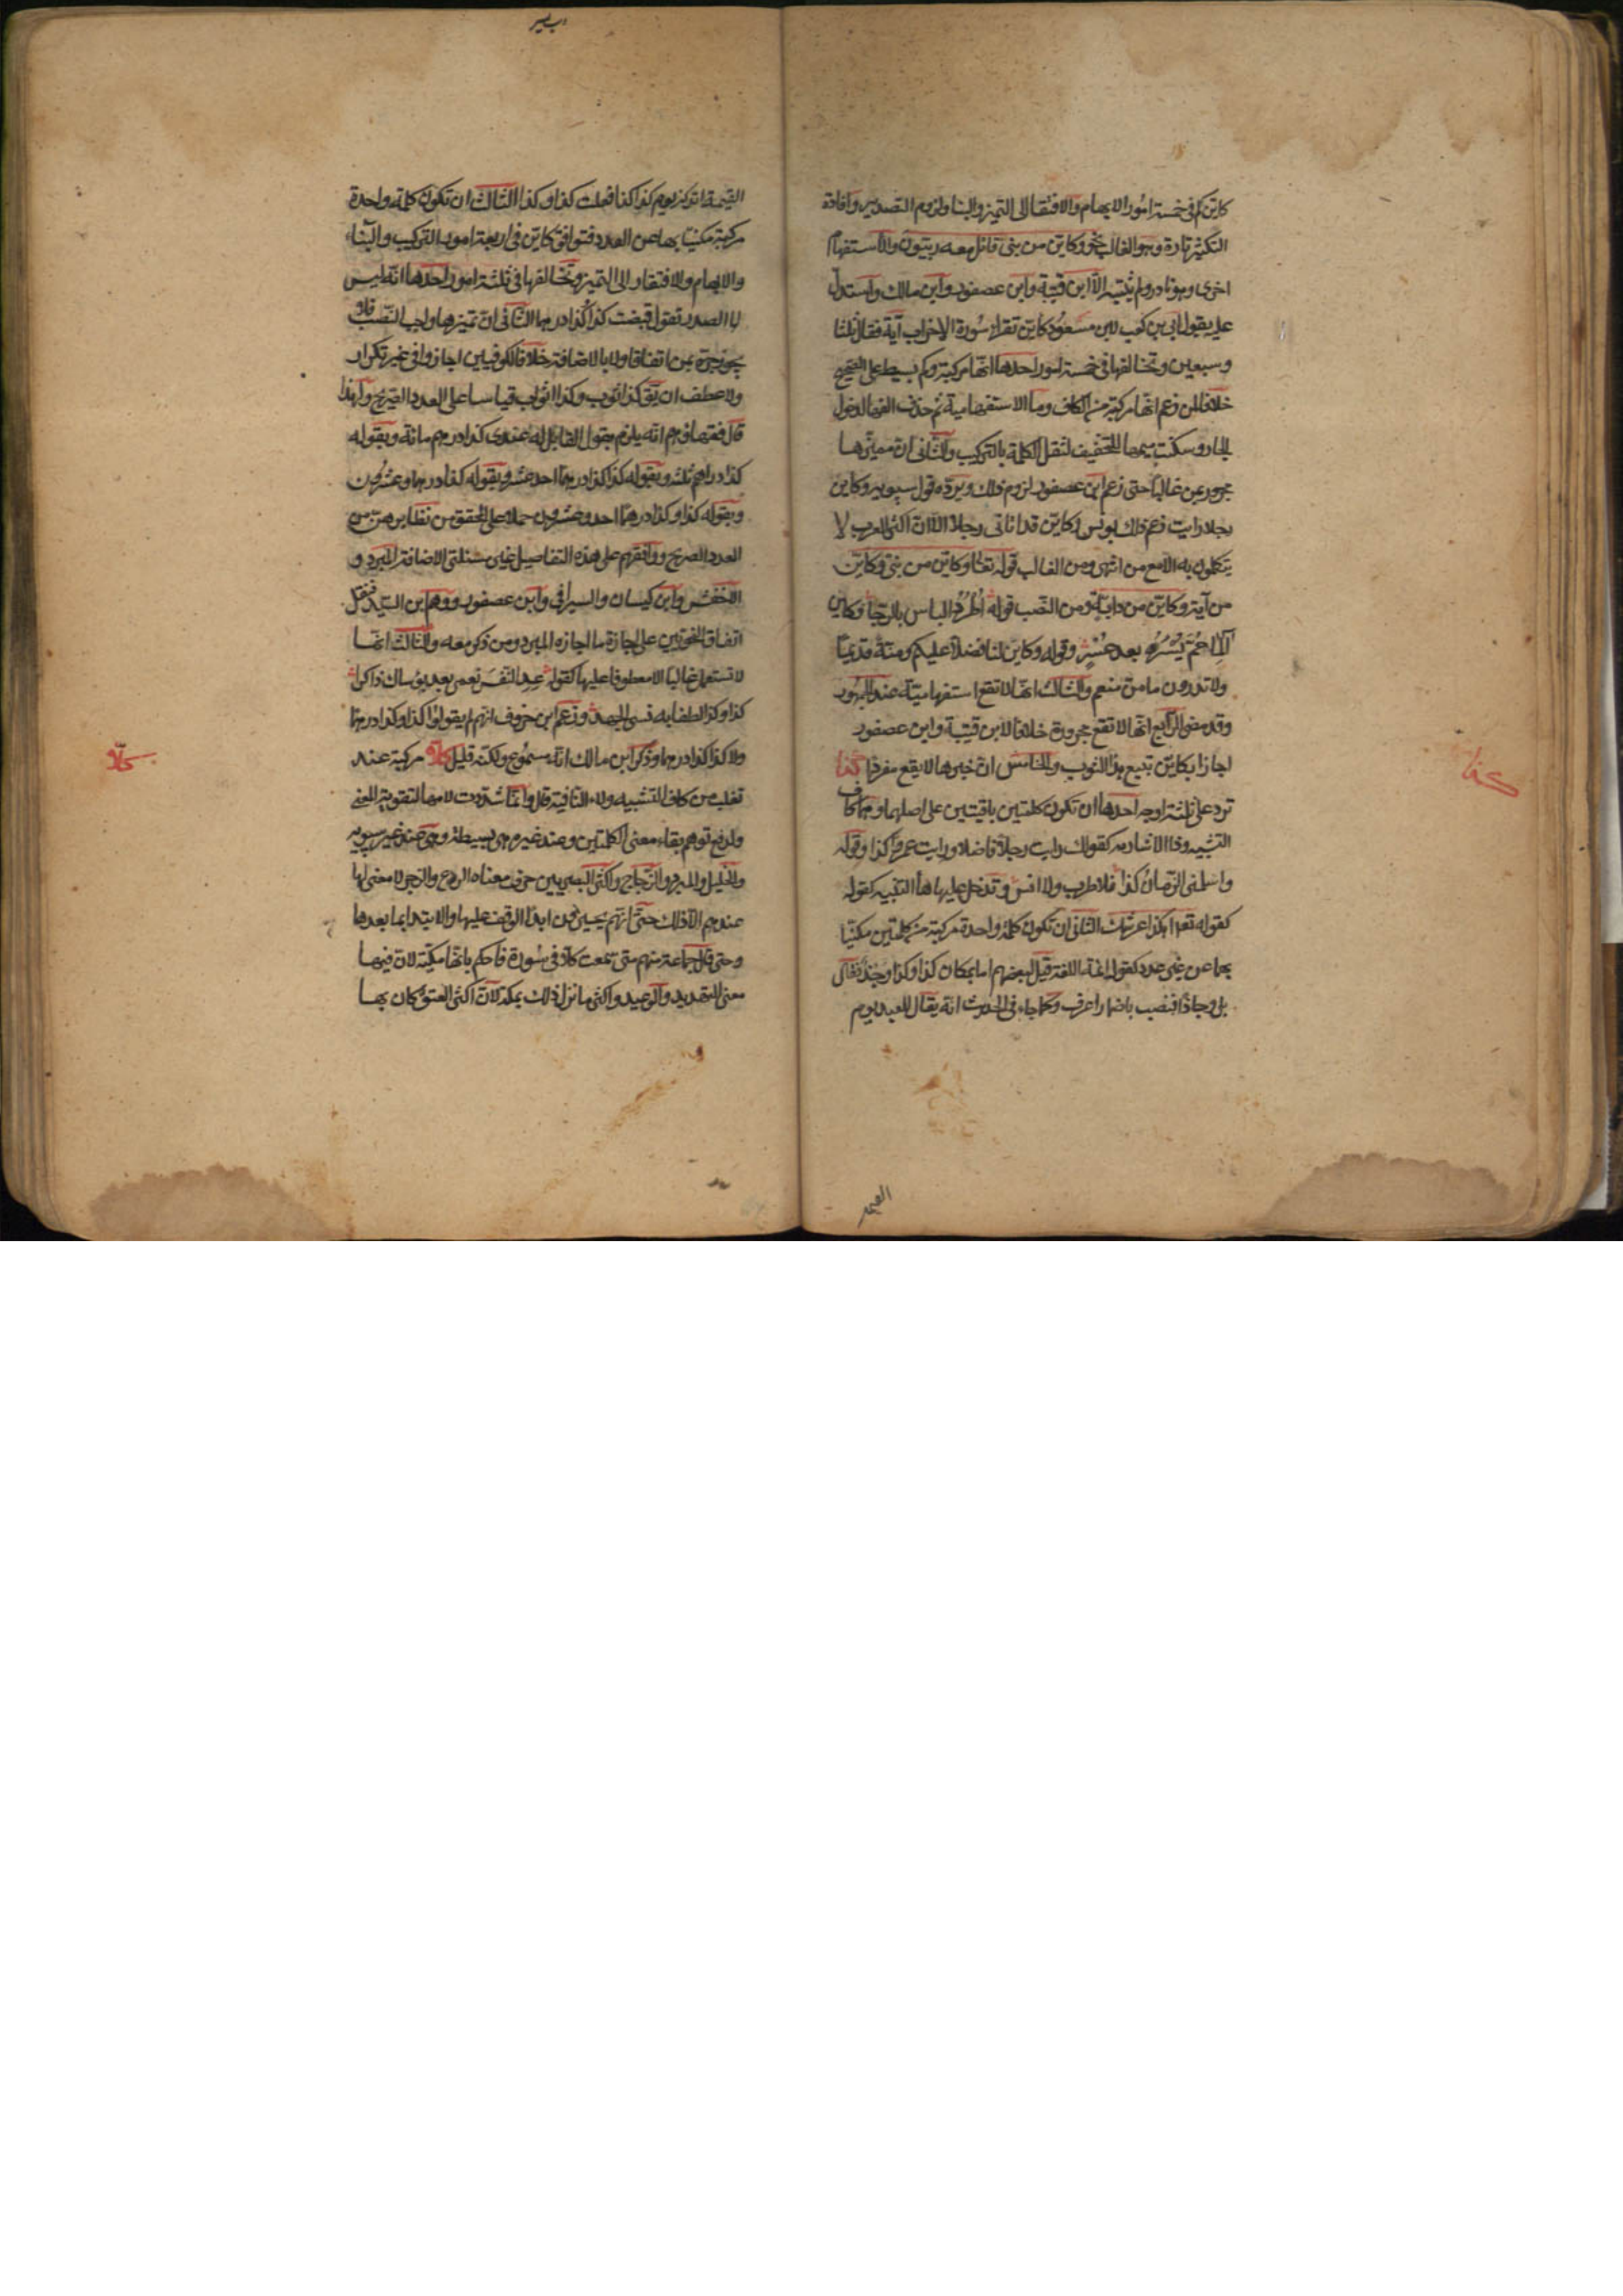 كاين كم في خمسة امور الابهام والافتقار الى التميز والبنا ولزوم التصدير وافادة
التكثير تارة وهو الغالب نحو وكاين من نبي قاتل معه ربيون والاستفهام
اخرى وهو نادر ولم يثبته الا ابن قتيبة وابن عصفور وابن مالك واستدل
عليه بقول ابي بن كعب لابن مسعود كاين تقرا سورة الاحزاب آية فقال ثلثا
وسبعين وتخالفها في خمسة امور احدها انها مركبة وكم بسيط على الصحيح
خلافا لمن زعم انها مركبة من الكاف وما الاستفهامية ثم حذفت الفها لدخول
الجار وسكنت ميمها للتخفيف لثقل الكلمة بالتركيب والثاني ان مميزها
مجرور بمن غالبا حتى زعم ابن عصفور لزوم ذلك ويرده قول سيبويه وكاين
رجلا رايت زعم ذلك يونس وكاين قد اتاني رجلا الا ان اكثر العرب لا
يتكلمون به الا مع من انتهى ومن الغالب قوله تعا وكاين من نبي وكاين
من آية وكاين من دابة ومن النصب قوله اطرد الياس بالرجا وكاين
آلما حم يسره بعد عسر وقوله وكاين لنا فضلا عليكم ومنة قديما
ولا تدرون ما من منعم والثالث انها لا تقع استفهامية عند الجمهور
وقد مضى الرابع انها لا تقع مجرورة خلافا لابن قتيبة وابن عصفور
اجازا بكاين تبيع هذا الثوب والخامس ان خبرها لا يقع مفردا كذا
كذا
ترد على ثلثة اوجه احدها ان تكون كلمتين باقيتين على اصلهما وهما كاف
التشبيه وذا الاشارية كقولك رايت رجلا فاضلا ورايت عمروا كذا وقوله
واسلمني الزمان كذا فلا طرب ولا انس وتدخل عليها ها التنبيه كقوله
كقوله تعا اهكذا عرشك الثاني ان تكون كلمة واحدة مركبة من كلمتين مكنيا
بها عن غير عدد كقول ائمة اللغة قيل لبعضهم اما بمكان كذا وكذا وجذ فقال
بلى وجاذا فنصب باضمار اعرف وكما جاء في الحديث انه يقال للعبد يوم
القيمة اتذكر يوم كذا كذا فعلت كذا وكذا الثالث ان تكون كلمة واحدة
مركبة مكنيا بها عن العدد فتوافق كاين في اربعة امور التركيب والبناء
والابهام والافتقار الى التميز وتخالفها في ثلثة امور احدها انه ليس
لها الصدر تقول قبضت كذا كذا درهما الثاني ان تميزها واجب النصب فلا
يجوز جره بمن اتفاقا ولا بالاضافة خلافا للكوفيين اجازوا في غير تكرار
ولا عطف ان يق كذا ثوب وكذا اثواب قياسا على العدد الصريح ولهذا
قال فقهاؤهم انه يلزم بقول القايل له عندي كذا درهم مائة وبقوله
كذا دراهم ثلثه وبقوله كذا كذا درهما احد عشر وبقوله كذا درهما وعشرون
وبقوله كذا وكذا درهما احد وعشرون حملا على المحقق من نظايرهن من
العدد الصريح ووافقهم على هذه التفاصيل غير مسئلتي الاضافة المبرد و
الاخفش وابن كيسان والسيرافي وابن عصفور ووهم ابن السيد فنقل
اتفاق النحويين على اجازة ما اجازه المبرد ومن ذكر معه والثالث انها
لا تستعمل غالبا الا معطوفا عليها كقوله عد النفس نعمى بعد بؤساك ذاكرا
كذا وكذا لطفا به نسي الجهد وزعم ابن خروف انهم لم يقولوا كذا وكذا درهما
ولا كذا كذا درهما وذكر ابن مالك انه مسموع ولكنه قليل كلا مركبة عند
كلا
ثعلب من كاف التشبيه ولاء النافية قال وانما شددت لامها لتقوية المعنى
ولدفع توهم بقاء معنى الكلمتين وعند غيره هي بسيطة وهي عند غير سيبويه
والخليل والمبرد والزجاج واكثر البصريين حرف معناه الردع والزجر لا معنى لها
عندهم الا ذلك حتى انهم يجيزون ابدا الوقف عليها والابتدا بما بعدها
وحتى قال جماعة منهم متى سمعت كلا في سورة فاحكم بانها مكية لان فيها
معنى التهديد والوعيد واكثر ما نزل ذلك بمكة لان اكثر العتو كان بها